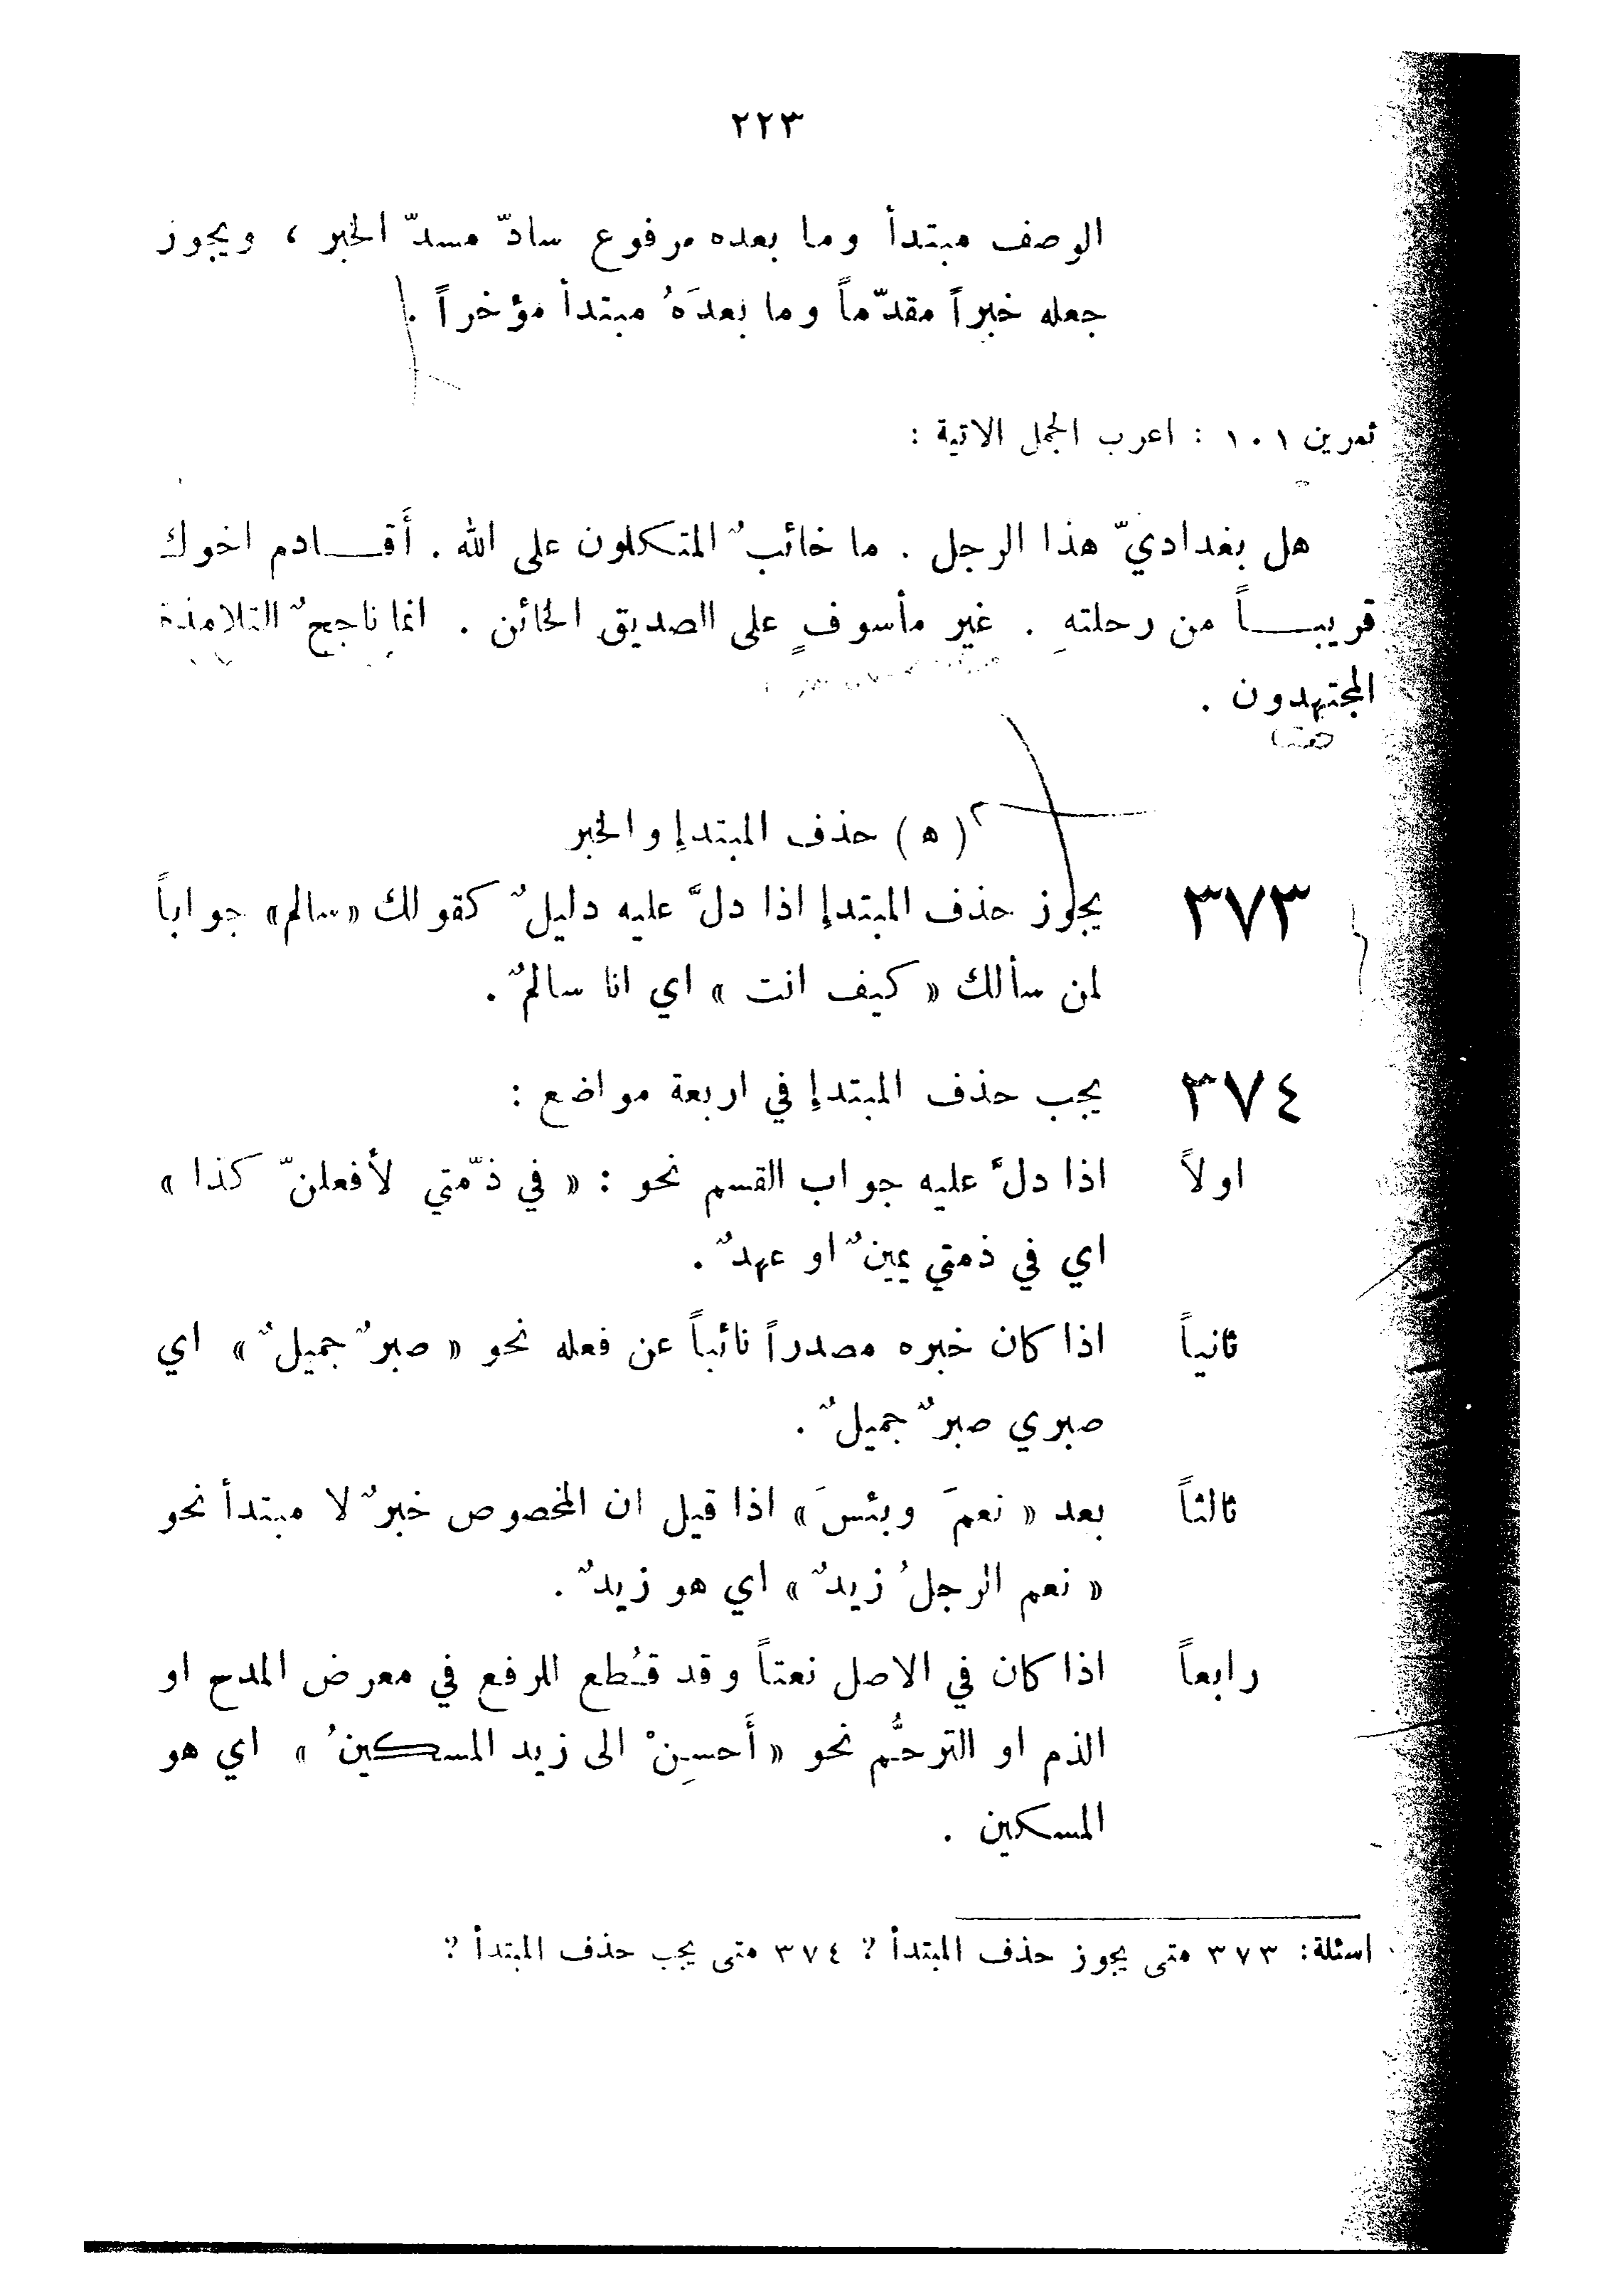 ٢٢٣
الوصف مبتدأ وما بعده مرفوع سادّ مسدّ الخبر ، ويجوز
جعله خبراً مقدّماً وما بعدَهُ مبتدأ مؤخراً .
تمرين ١٠١ : اعرب الجمل الاتية :
هل بغداديّ هذا الرجل . ما خائبٌ المتكلون على الله . أَقـــادم اخوك
قريبـــاً من رحلتهِ . غير مأسوفٍ على الصديق الخائن . انما ناجحٌ التلامذة
المجتهدون .
(ه) حذف المبتدإ والخبر
٣٧٣ يجوز حذف المبتدإ اذا دلَّ عليه دليلٌ كقولك «سالم» جواباً
لمن سألك « كيف انت » اي انا سالمٌ .
٣٧٤ يجب حذف المبتدإ في اربعة مواضع :
اولاً اذا دلَّ عليه جواب القسم نحو : « في ذمّتي لأفعلنّ كذا »
اي في ذمتي يمينٌ او عهدٌ .
ثانياً اذا كان خبره مصدراً نائباً عن فعله نحو « صبرٌ جميلٌ » اي
صبري صبرٌ جميلٌ .
ثالثاً بعد « نعمَ وبئسَ » اذا قيل ان المخصوص خبرٌ لا مبتدأ نحو
« نعم الرجلُ زيدٌ » اي هو زيدٌ .
رابعاً اذا كان في الاصل نعتاً وقد قُطع للرفع في معرض المدح او
الذم او الترحُّم نحو « أَحسِنْ الى زيد المسكينُ » اي هو
المسكين .
اسئلة: ٣٧٣ متى يجوز حذف المبتدأ ؟ ٣٧٤ متى يجب حذف المبتدأ ؟